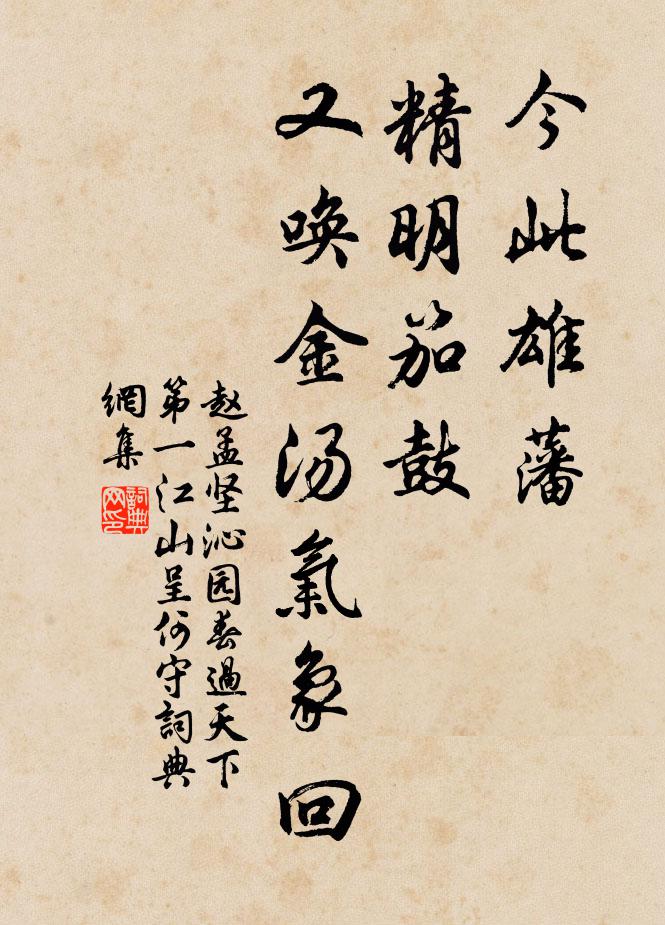 今此雄藩
精明笳鼓
又唤金汤氣象回
赵孟坚沁园春過天下
第一江山呈何守詞典
網集
詞典網印